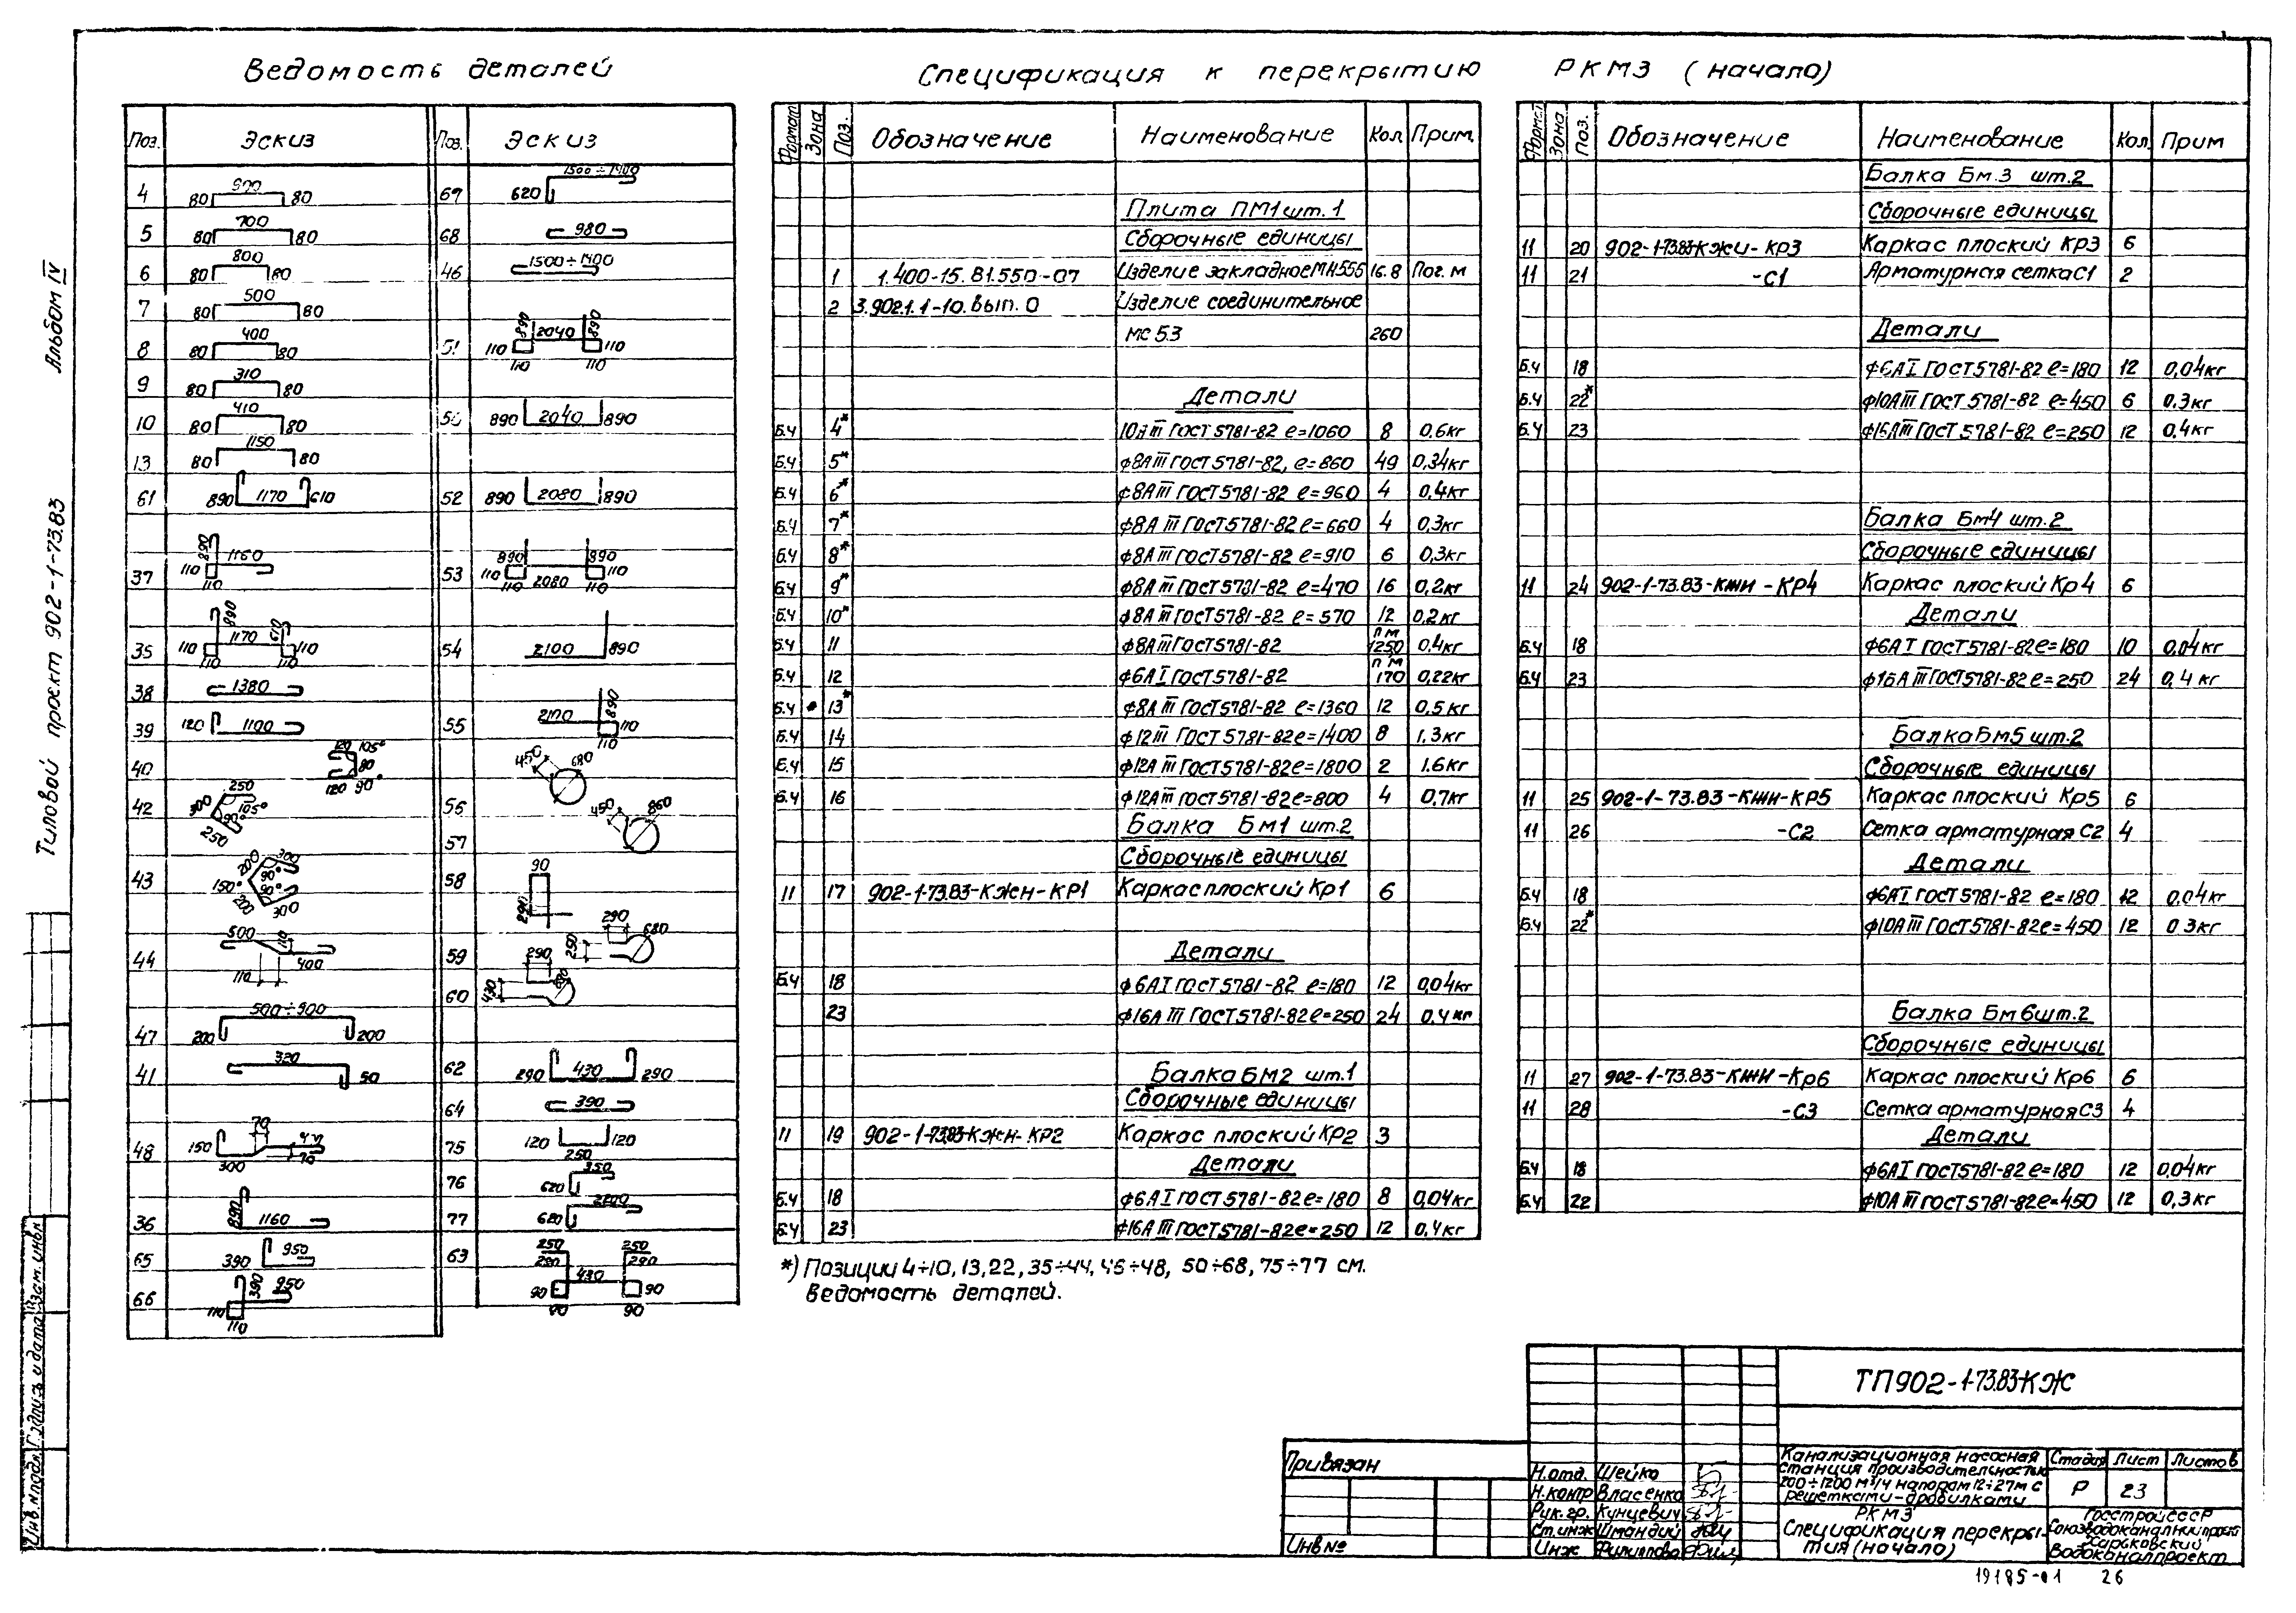 Ведомость деталей
Поз. Эскиз Поз. Эскиз
4 80 900 80
5 80 700 80
6 80 800 80
7 80 500 80
8 80 400 80
9 80 310 80
10 80 410 80
13 80 1150 80
61 890 1170 610
37 890 1160 110 110
35 890 1170 610 110 110 110 110
38 1380
39 120 1100
40 120 105° 80 120 90°
42 250 300 105° 90° 250
43 200 300 90° 150° 90° 200 300
44 500 110 400 110
47 500÷900 200 200
41 320 50
48 150 70 300 70
36 890 1160
65 390 950
66 390 950 110 110
67 620 1500÷1900
68 980
46 1500÷1900
51 890 2040 890 110 110 110 110
50 890 2040 890
52 890 2080 890
53 890 890 110 2080 110 110 110
54 2100 890
55 2100 890 110 110
56 450 680
57 450 860
58 90 290
59 290 680 250
60 290 430
62 290 430 290
64 390
75 120 250 120
76 620 350
77 620
63 250 250 290 290 430 90 90 90 90
Спецификация к перекрытию РКМ3 (начало)
Формат Зона Поз. Обозначение Наименование Кол. Прим.
Плита ПМ1 шт. 1
Сборочные единицы
1 1.400-15.В1.550-07 Изделие закладное МН555 16.8 Пог. м
2 3.902.1.1-10. Вып. 0 Изделие соединительное
мс 53 260
Детали
Б.Ч 4* 10АIII ГОСТ 5781-82 е=1060 8 0.6кг
Б.Ч 5* ф8АIII ГОСТ 5781-82, е=860 49 0,34кг
Б.Ч 6* ф8АIII ГОСТ 5781-82 е=960 4 0,4кг
Б.Ч 7* ф8АIII ГОСТ 5781-82 е=660 4 0,3кг
Б.Ч 8* ф8АIII ГОСТ 5781-82 е=910 6 0,3кг
Б.Ч 9* ф8АIII ГОСТ 5781-82 е=470 16 0,2кг
Б.Ч 10* ф8АIII ГОСТ 5781-82 е=570 12 0,2кг
Б.Ч 11 ф8АIII ГОСТ 5781-82 пм 1250 0,4кг
Б.Ч 12 ф6АI ГОСТ 5781-82 пм 170 0,22кг
Б.Ч 13* ф8АIII ГОСТ 5781-82 е=1360 12 0,5кг
Б.Ч 14 ф12III ГОСТ 5781-82 е=1400 8 1.3кг
Б.Ч 15 ф12АIII ГОСТ 5781-82 е=1800 2 1.6кг
Б.Ч 16 ф12АIII ГОСТ 5781-82 е=800 4 0,7кг
Балка Бм1 шт.2
Сборочные единицы
11 17 902-1-73.83-КЖН-КР1 Каркас плоский Кр1 6
Детали
Б.Ч 18 ф6АI ГОСТ 5781-82 е=180 12 0,04кг
23 ф16АIII ГОСТ 5781-82 е=250 24 0,4кг
Балка БМ2 шт.1
Сборочные единицы
11 19 902-1-73.83-КЖН-КР2 Каркас плоский Кр2 3
Детали
Б.Ч 18 ф6АI ГОСТ 5781-82 е=180 8 0,04кг
Б.Ч 23 ф16АIII ГОСТ 5781-82 е=250 12 0,4кг
*) Позиции 4÷10, 13, 22, 35÷44, 46÷48, 50÷68, 75÷77 см.
Ведомость деталей.
Формат Зона Поз. Обозначение Наименование Кол. Прим
Балка Бм.3 шт.2
Сборочные единицы
11 20 902-1-73.83-КЖИ-КР3 Каркас плоский Кр3 6
11 21 -С1 Арматурная сетка С1 2
Детали
Б.Ч 18 ф6АI ГОСТ 5781-82 е=180 12 0,04кг
Б.Ч 22* ф10АIII ГОСТ 5781-82 е=450 6 0,3кг
Б.Ч 23 ф16АIII ГОСТ 5781-82 е=250 12 0,4кг
Балка Бм4 шт.2
Сборочные единицы
11 24 902-1-73.83-КЖИ-КР4 Каркас плоский Кр4 6
Детали
Б.Ч 18 ф6АI ГОСТ 5781-82 е=180 10 0,04кг
Б.Ч 23 ф16АIII ГОСТ 5781-82 е=250 24 0,4кг
Балка Бм5 шт.2
Сборочные единицы
11 25 902-1-73.83-КЖИ-КР5 Каркас плоский Кр5 6
11 26 -С2 Сетка арматурная С2 4
Детали
Б.Ч 18 ф6АI ГОСТ 5781-82 е=180 12 0,04кг
Б.Ч 22* ф10АIII ГОСТ 5781-82 е=450 12 0 3кг
Балка Бм6 шт.2
Сборочные единицы
11 27 902-1-73.83-КЖИ-Кр6 Каркас плоский Кр6 6
11 28 -С3 Сетка арматурная С3 4
Детали
Б.Ч 18 ф6АI ГОСТ 5781-82 е=180 12 0,04кг
Б.Ч 22 ф10АIII ГОСТ 5781-82 е=450 12 0,3кг
Альбом IV
Типовой проект 902-1-73.83
Инв.№подл. Подпись и дата Взам. инв.№
ТП902-1-73.83-КЖ
Привязан
Инв №
Н.отд. Шейко
Н.контр Власенко
Рук. гр. Кунцевич
Ст.инж Шмандий
Инж Филиппова
Канализационная насосная
станция производительностью
200÷1200 м³/ч напором 12÷27м с
решетками-дробилками
Стадия Лист Листов
Р 23
РКМ3
Спецификация перекры-
тия (начало)
Госстрой СССР
Союзводоканалниипроект
Харьковский
Водоканалпроект
19185-01 26